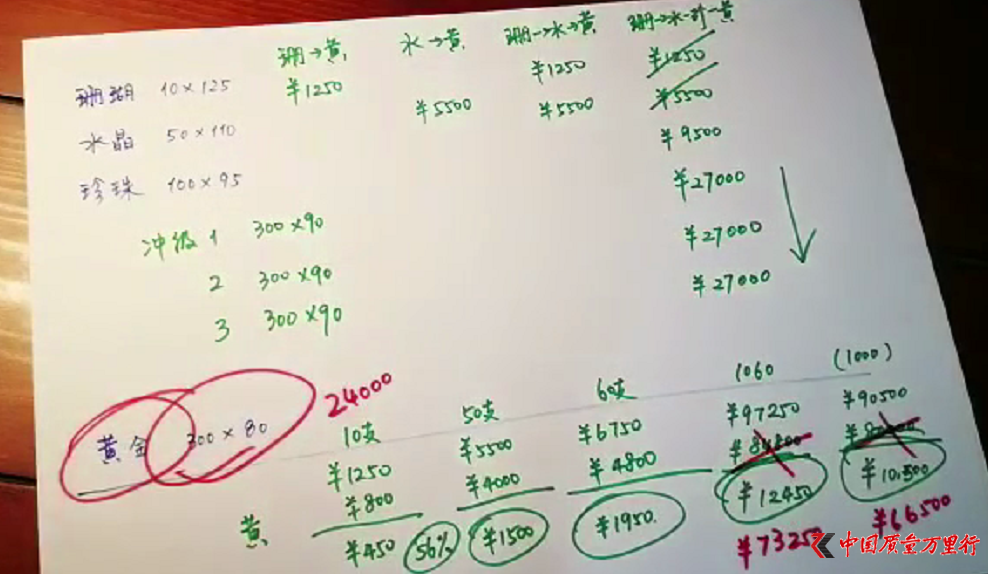 珊→黄 水→黄 珊→水→黄 珊→水→珍→黄
珊瑚 10×125 ¥1250 ¥1250 ¥1250
水晶 50×110 ¥5500 ¥5500 ¥5500
珍珠 100×95 ¥9500
冲级1 300×90 ¥27000
2 300×90 ¥27000
3 300×90 ¥27000
黄金 300×80 24000
10支 50支 60支 1060 (1000)
¥1250 ¥5500 ¥6750 ¥97250 ¥90500
¥800 ¥4000 ¥4800 ¥84800
黄 ¥450 56% ¥1500 ¥1950. ¥12450 ¥10,500
¥73250 ¥66500
中国质量万里行